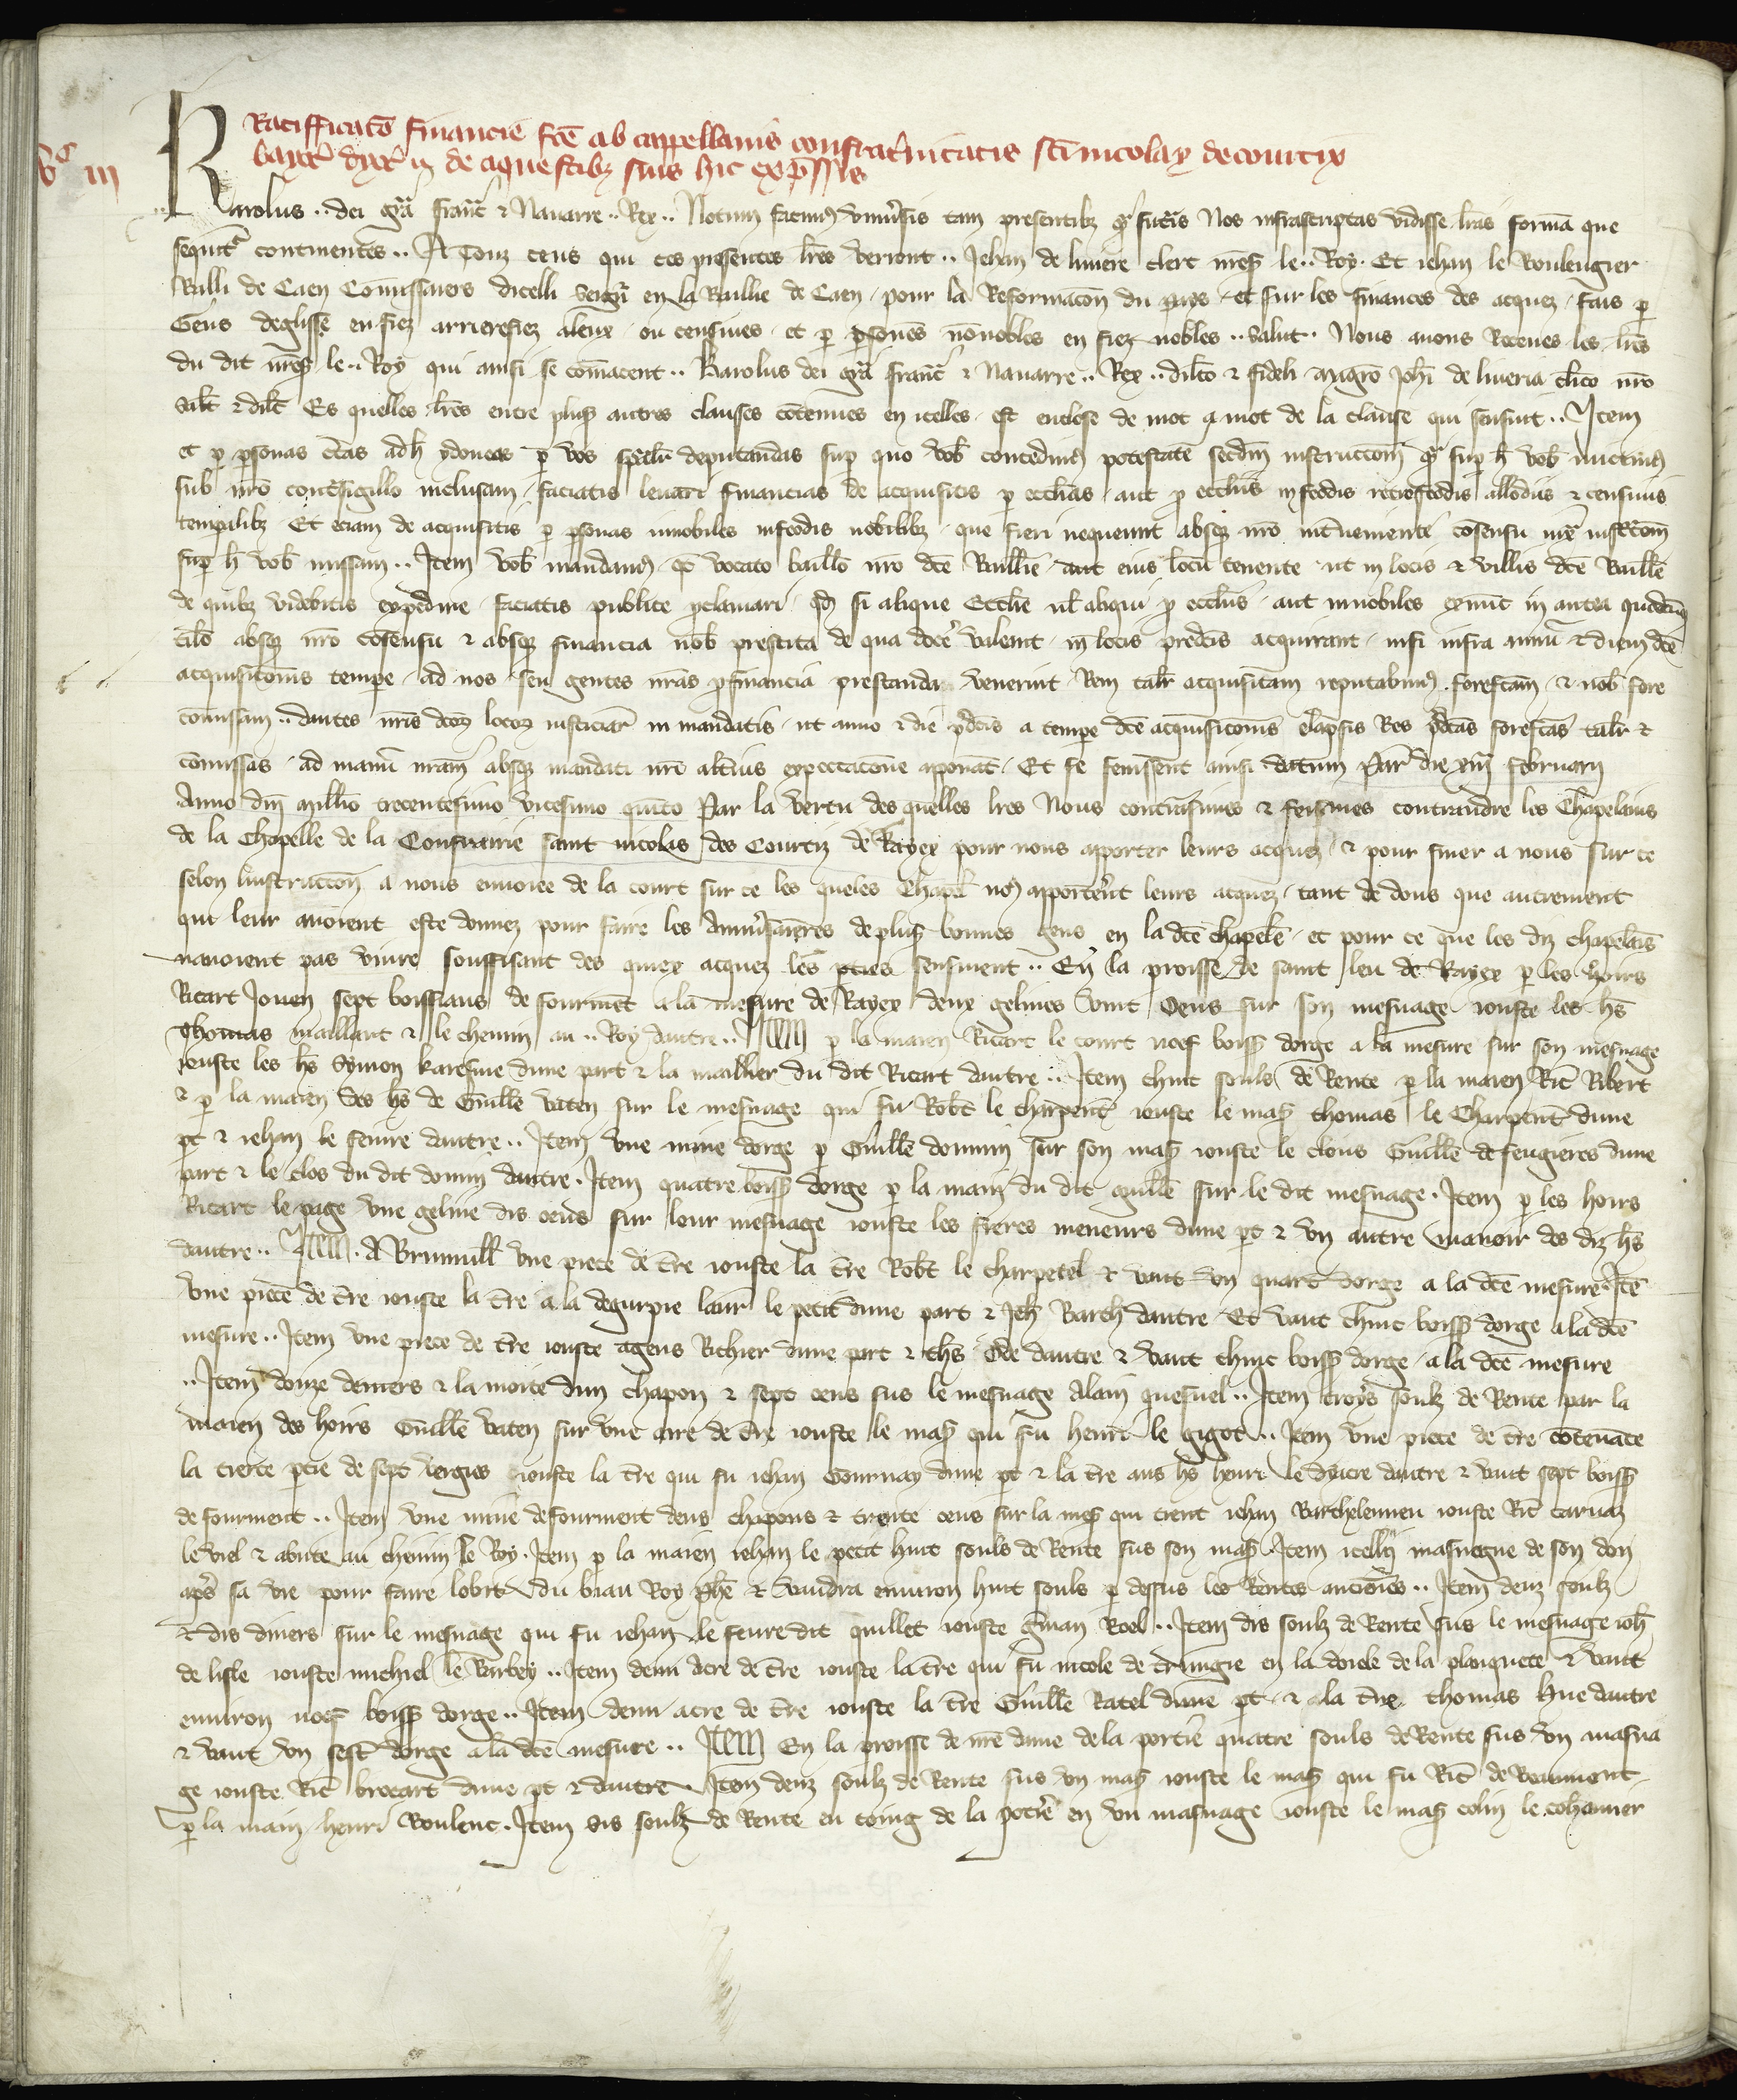 Ratifficatō financie fcē ab cappellanis confrat'nitatis sci nicolay de courtix
v^c iii
baioc' dyoc' in de aquestibz suis hic exp̄ssis
Karolus .. dei grā franc' & Nauarre .. Rex .. Notum facimus vniuersis tam presentibz q' futuris Nos infrascriptas vidisse lrās formā que
sequit' continentes .. A Touz ceus qui ces presentes lrēs verront .. Jehan de liuiere clerc nreꝰ le .. Roy. Et iehan le Boulengier
Bailli de Caen Comissaires dicelli seign' en la Baillie de Caen / pour la Reformacon du pays / et sur les finances des acquez / fais p
Gens deglisse en fiez arrierefiez aleux / ou censiues / et p psones nonobles en fiez nobles .. salut .. Nous auons Receues les lrēs
du dit nreꝰ le .. Roy qui ainsi se cōmacent .. Karolus dei grā franc' & Nauarre .. Rex .. dilcō & fideli magrō Johi de liueria clico nrō
salt & dilc̄ Es quelles lrēs entre pluss autres clauses cōtenues en icelles / est enclose de mot a mot de la clause qui sensuit .. Item
et p psonas c̄tas ad h ydoneas p vos spāl'r deputandas sup quo vob concedimꝰ potestatē secdm instruccom q' sup h vob mictimꝰ
sub nrō contrasigillo inclusam / faciatis leuari financias de acquisitis p ecclias / aut p ecclīis in feodis retrofeodis allodiis & censiuis
tempalibz Et eciam de acquisitis p psonas innobiles infeodis nobilibz / que fieri nequeunt absqz nrō int'ueniente cōsensu iux' instr̄com
sup h vob missam .. Item vob mandamꝰ q' vocato bailliō nrō dcē Baillie aut eius locū tenente ut in locis & villis dcē Baillie
de quibz videbitis expedire / faciatis publice pclamari / qd si alique Ecclie ul' aliqui p ecclīis / aut innobiles
absqz nrō cōsensu & absqz financia nob prestita de qua docē valeant / in locis predcis acquirant / nisi infra annū & diem dcē
acquisicōnis tempe / ad nos seu gentes nrās p financia prestanda venerint / Rem tal'r acquisitam reputabimꝰ forefcam / & nob fore
cōmissam .. dantes nris dcoz locoz iusticiar' in mandatis / ut anno & die pdcis a tempe dcē acquisicōnis elapsis Res pdcas forefcas tal'r &
cōmissas / ad manū nram absqz mandati nrī alt'ius expectacōne aponāt / Et se fenissent ainsi datum Par' die februarii
Anno dni millio trecentesimo vicesimo quīto Par la vertu des quelles lrēs Nous contrainsimes & feismes contraindre les Chapelains
de la Chapelle de la Confrairie saint nicolas des Courtiz de Baiex pour nous apporter leurs acquez / & pour finer a nous sur ce
selon linstruccōn a nous enuoiee de la court sur ce les queles Chapel' noꝰ apportēt leurs acquez / tant de dons que autrement
qui leur auoient este donnez pour faire les Anniūsaires de pluss bonnes gens en la dcē chapele / et pour ce que les diz chapelais
nauoient pas viure souffisant des quiex acquez les pties sensiuent .. En la proisse de saint leu de Baiex p les hoirs
Ricart Jouen sept boissiaus de fourmēt a la mesure de Baiex deux gelines vint Oeus sur son mesnage iouste les hs
Thomas maillart & le chemin au .. Roy dautre .. Item p la maien Ricart le court noef boiss dorge a la mesure sur son mesnage
iouste les hs Symon karesme dune part & la maillier du dit Ricart dautre .. Item chinc souls de Rente p la maien Ric' Ribert
& p la maien des hs de Guille vaten sur le mesnage qui fu Rob't le charpent' iouste le mas thomas le Charpent' dune
pt & iehan le feiure dautre .. Item vne mine dorge p Guille domin sur son mas iouste le clous Guille de feugieres dune
part & le clos du dit domin dautre . Item quatre boiss dorge p la main du dit guille sur le dit mesnage . Item p les hoirs
Ricart le page vne geline dis oeus sur lour mesnage iouste les freres meneurs dune pt & vn autre manoir des diz hs
dautre .. Item . A Brunuill' vne piece de t're iouste la t're Rob't le charpetel & vaut vn quart dorge a la dcē mesure . Itē
vne piece de t're iouste la t're a la degurpie laur' le petit dune part & Jeh' Barth dautre Et vaut chinc boiss dorge a la dcē
mesure .. Item vne piece de t're iouste agens Richier dune part & ths Ode dautre & vaut chinc boiss dorge / a la dcē mesure
.. Item douze deniers & la moite dun chapon & sept oeus sus le mesnage Alain quesnel .. Item troys soulz de Rente par la
maien des hoirs Guille vaten sur vne acre de t're iouste le mas qui fu henri le gigot .. Item vne piece de t're cotenāte
la tierce ptie de sept vergies iouste la t're qui fu iehan Gournay dune pt & la t're aus hs henri le dyacre dautre & vaut sept boiss
de fourment .. Item vne mine de fourment deus chapons & trente oeus sur la mes qui tient iehan Barthelemieu iouste Ric'
le viel & abute au chemin le Roy . Item p la maien iehan le petit huit souls de Rente sus son mas . Item icelli masnage de son don
apres sa vie pour faire lobit du biau Roy phē & vaudra enuiron huit souls p dessus les Rentes anciōnes .. Item deuz soulz
& dis diners sur le mesnage qui fu iehan le feure dit quillet iouste g'man Roel .. Item dis soulz de Rente sus le mesnage ioh'
de lisle iouste michiel le Barbey .. Item demi acre de t're iouste la t're qui fu nicole de en la doiele de la planquete & vaut
enuiron noef boiss dorge .. Item demi acre de t're iouste la t're Guille Ratel dune pt & a la t're thomas hue dautre
& vaut vn sest' dorge a la dcē mesure .. Item En la proisse de nrē dame de la poterie quatre souls de Rente sus vn masna
ge iouste Ric' brocart dune pt & dautre . Item deuz soulz de Rente sus vn mas iouste le mas qui fu Ric' de Beaumont
p la main henri Boulenc . Item sis soulz de Rente eu coing de la potie en vn masnage iouste le mas colin le cohanier